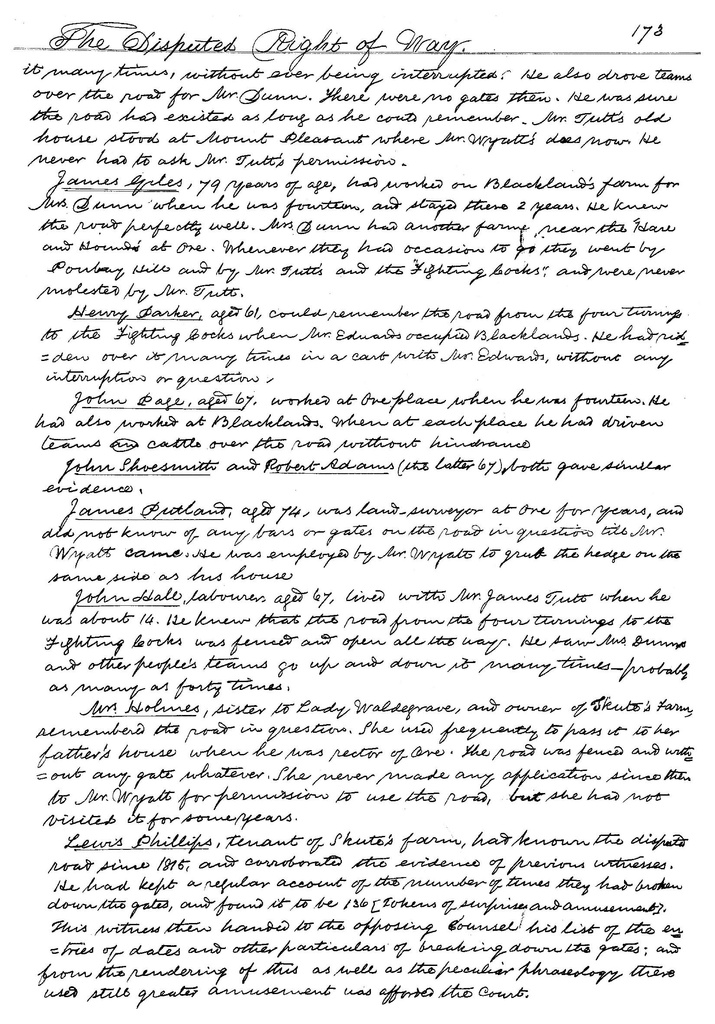 173
The Disputed Right of Way.
it many times, without ever being interrupted. He also drove teams
over the road for Mr. Dunn. There were no gates then. He was sure
the road had existed as long as he could remember. Mr. Tutt's old
house stood at Mount Pleasant where Mr. Wyatt's does now. He
never had to ask Mr. Tutt's permission.
James Giles, 79 years of age, had worked on Blackland's farm for
Mrs. Dunn when he was fourteen, and stayed there 2 years. He knew
the road perfectly well. Mrs Dunn had another farm, near the "Hare
and Hounds" at Ore. Whenever they had occasion to go they went by
Hill and by Mr. Tutt's and the "Fighting Cocks", and were never
molested by Mr. Tutt.
Henry Parker, aged 61, could remember the road from the four turnings
to the Fighting Cocks when Mr. Edwards occupied Blacklands. He had rid=
=den over it many times in a cart with Mr. Edwards, without any
interruption or question.
John Page, aged 67, worked at Ore place when he was fourteen. He
had also worked at Blacklands. When at each place he had driven
teams and cattle over the road without hindrance
John Shoesmith and Robert Adams (the latter 67), both gave similar
evidence.
James Putland, aged 74, was land-surveyor at Ore for years, and
did not know of any bars or gates on the road in question till Mr.
Wyatt came. He was employed by Mr. Wyatt to grub the hedge on the
same side as his house
John Hall, labourer, aged 67, lived with Mr. James Tutt when he
was about 14. He knew that the road from the four turnings to the
Fighting Cocks was fenced and open all the way. He saw Mrs. Dunn's
and other people's teams go up and down it many times—probably
as many as forty times.
Mrs. Holmes, sister to Lady Waldegrave, and owner of Skute's Farm,
remembered the road in question. She used frequently to pass it to her
father's house when he was rector of Ore. The road was fenced and with=
=out any gate whatever. She never made any application since then
to Mr. Wyatt for permission to use the road, but she had not
visited it for some years.
Lewis Phillips, tenant of Skute's farm, had known the disputed
road since 1815, and corroborated the evidence of previous witnesses.
He had kept a regular account of the number of times they had broken
down the gates, and found it to be 136 [Tokens of surprise and amusement].
This witness then handed to the opposing Counsel his list of the en=
=tries of dates and other particulars of breaking down the gates; and
from the rendering of this as well as the peculiar phraseology there
used still greater amusement was afforded the Court.